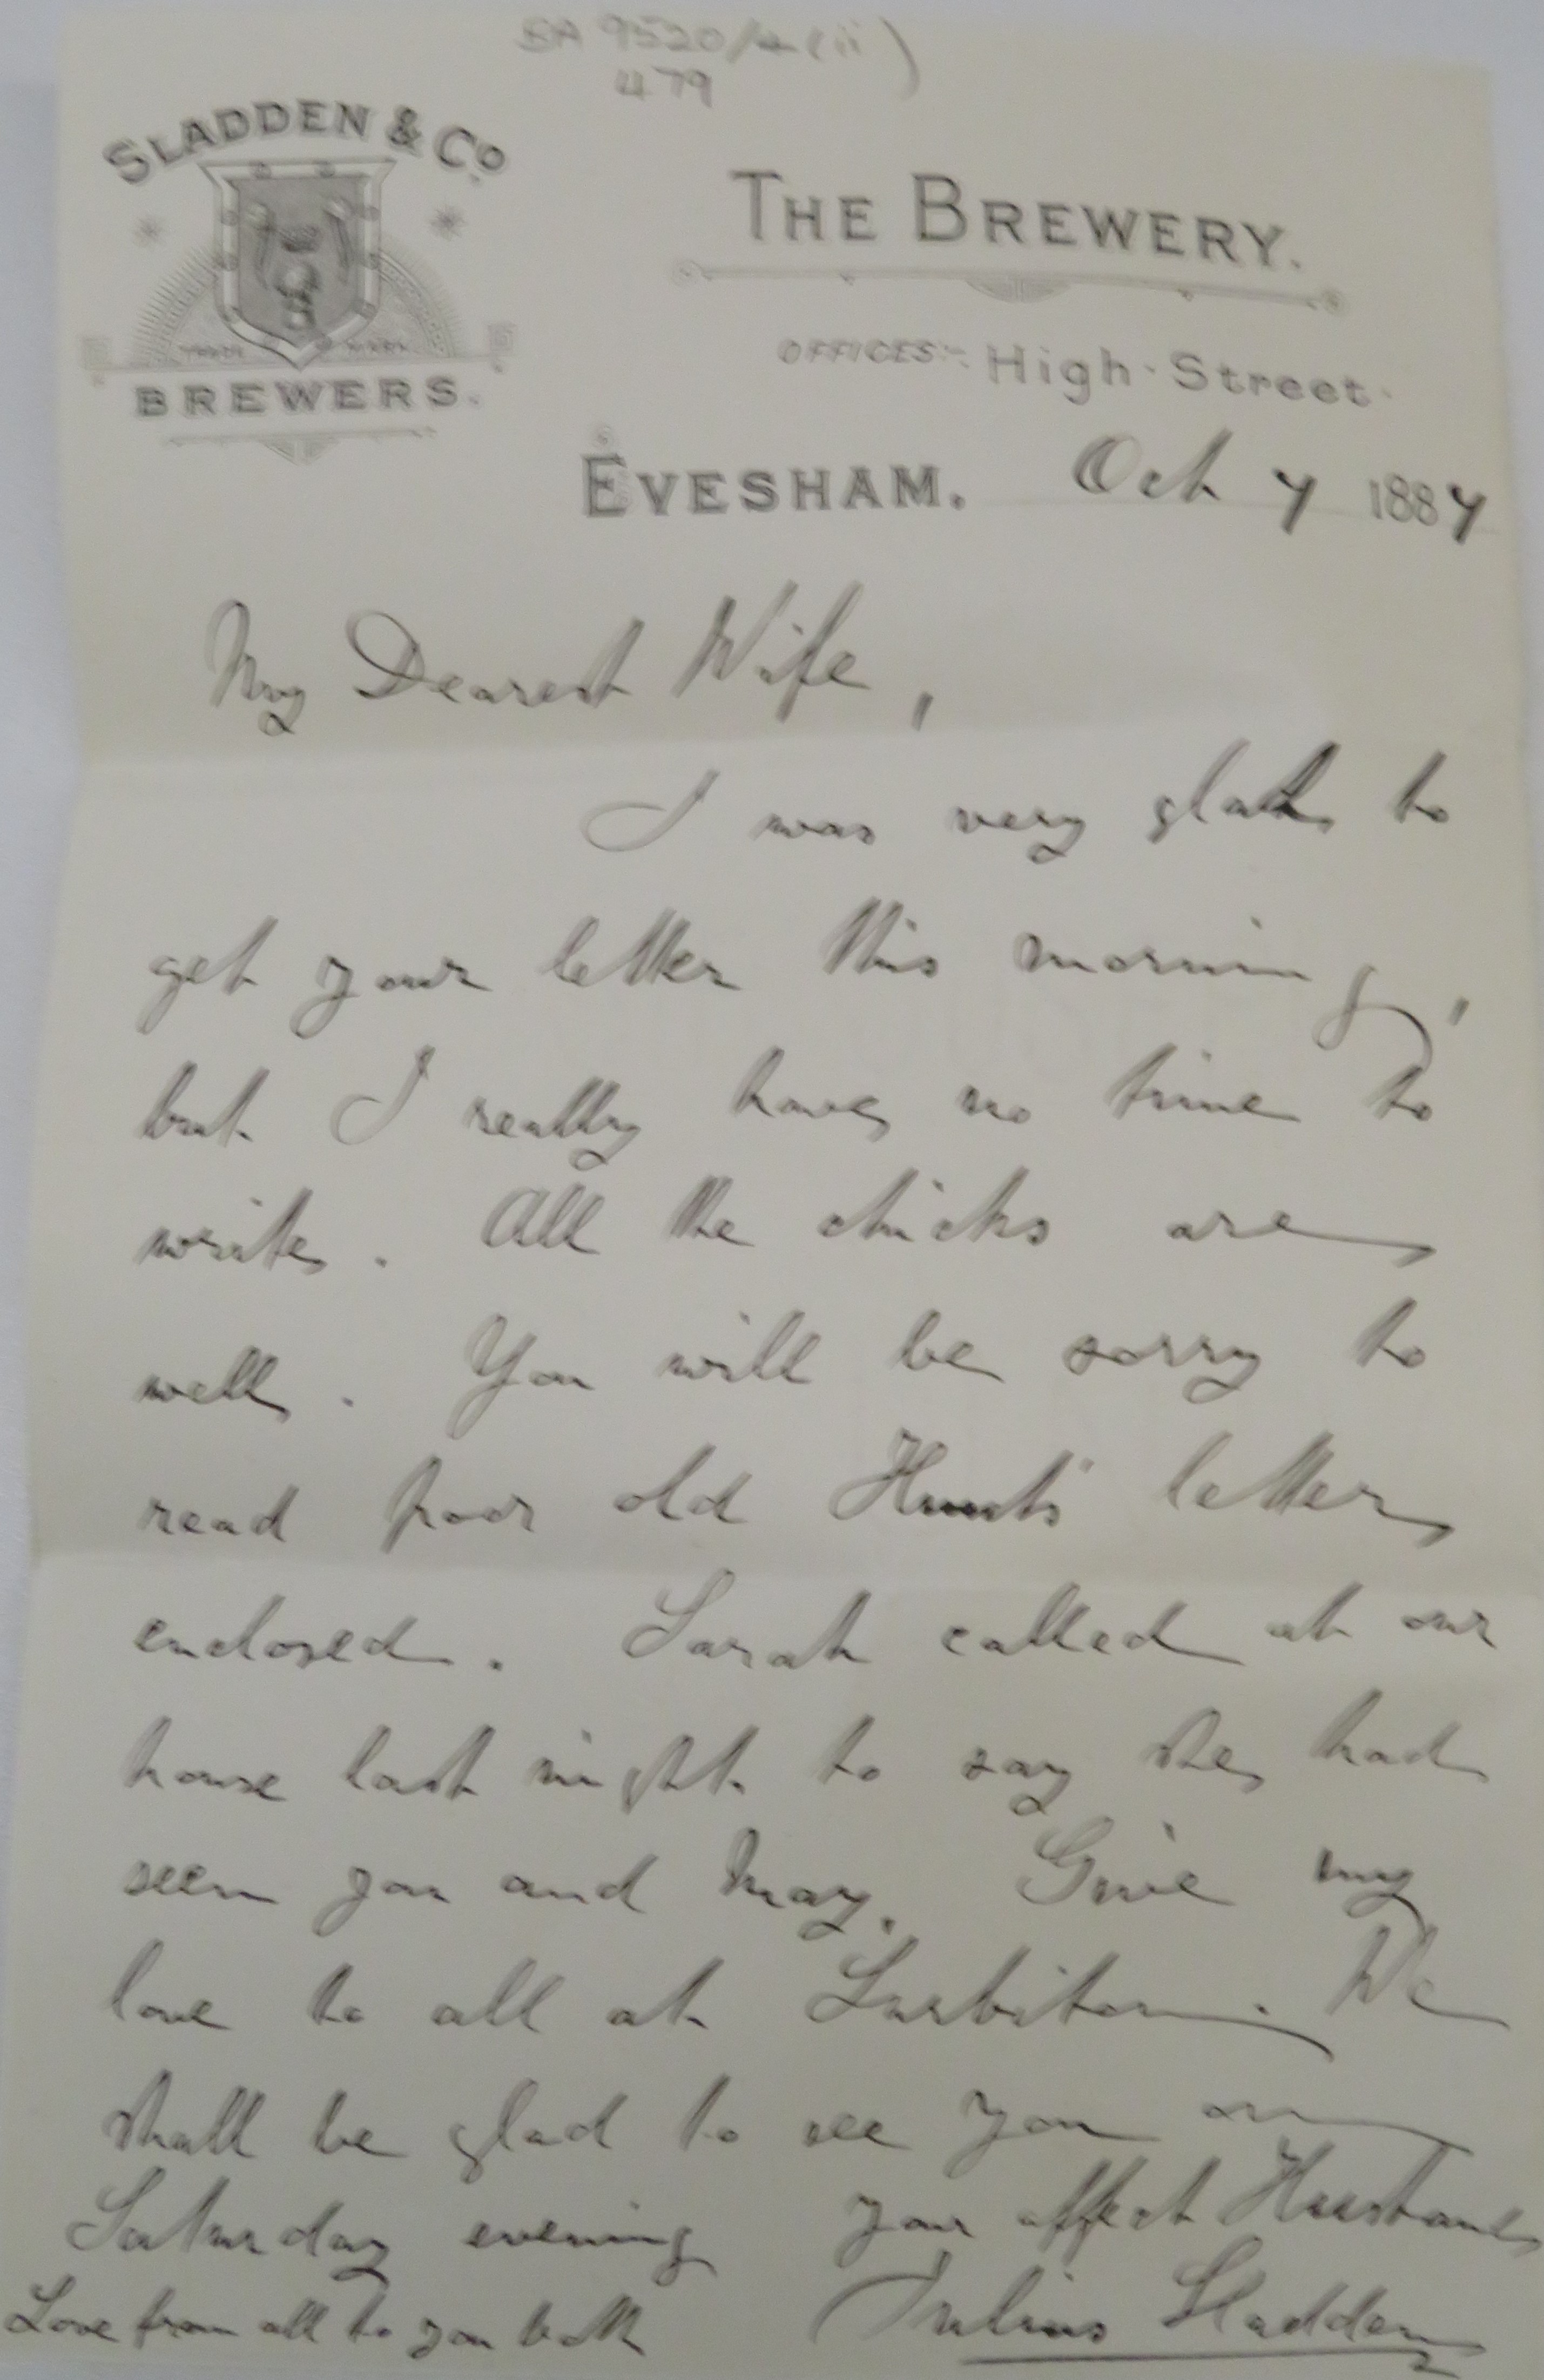 BA 9520/4(ii)
479
SLADDEN & Co
TRADE MARK
BREWERS.
THE BREWERY.
OFFICES:- High Street.
EVESHAM. Oct 7 1887
My Dearest Wife,
I was very glad to
get your letter this morning,
but I really have no time to
write. All the chicks are
well. You will be sorry to
read poor old Hunt's letter
enclosed. Sarah called at our
house last night to say she had
seen you and May. Give my
love to all at Surbiton. We
shall be glad to see you on
Saturday evening your affect Husband
Love from all to you both Julius Sladden